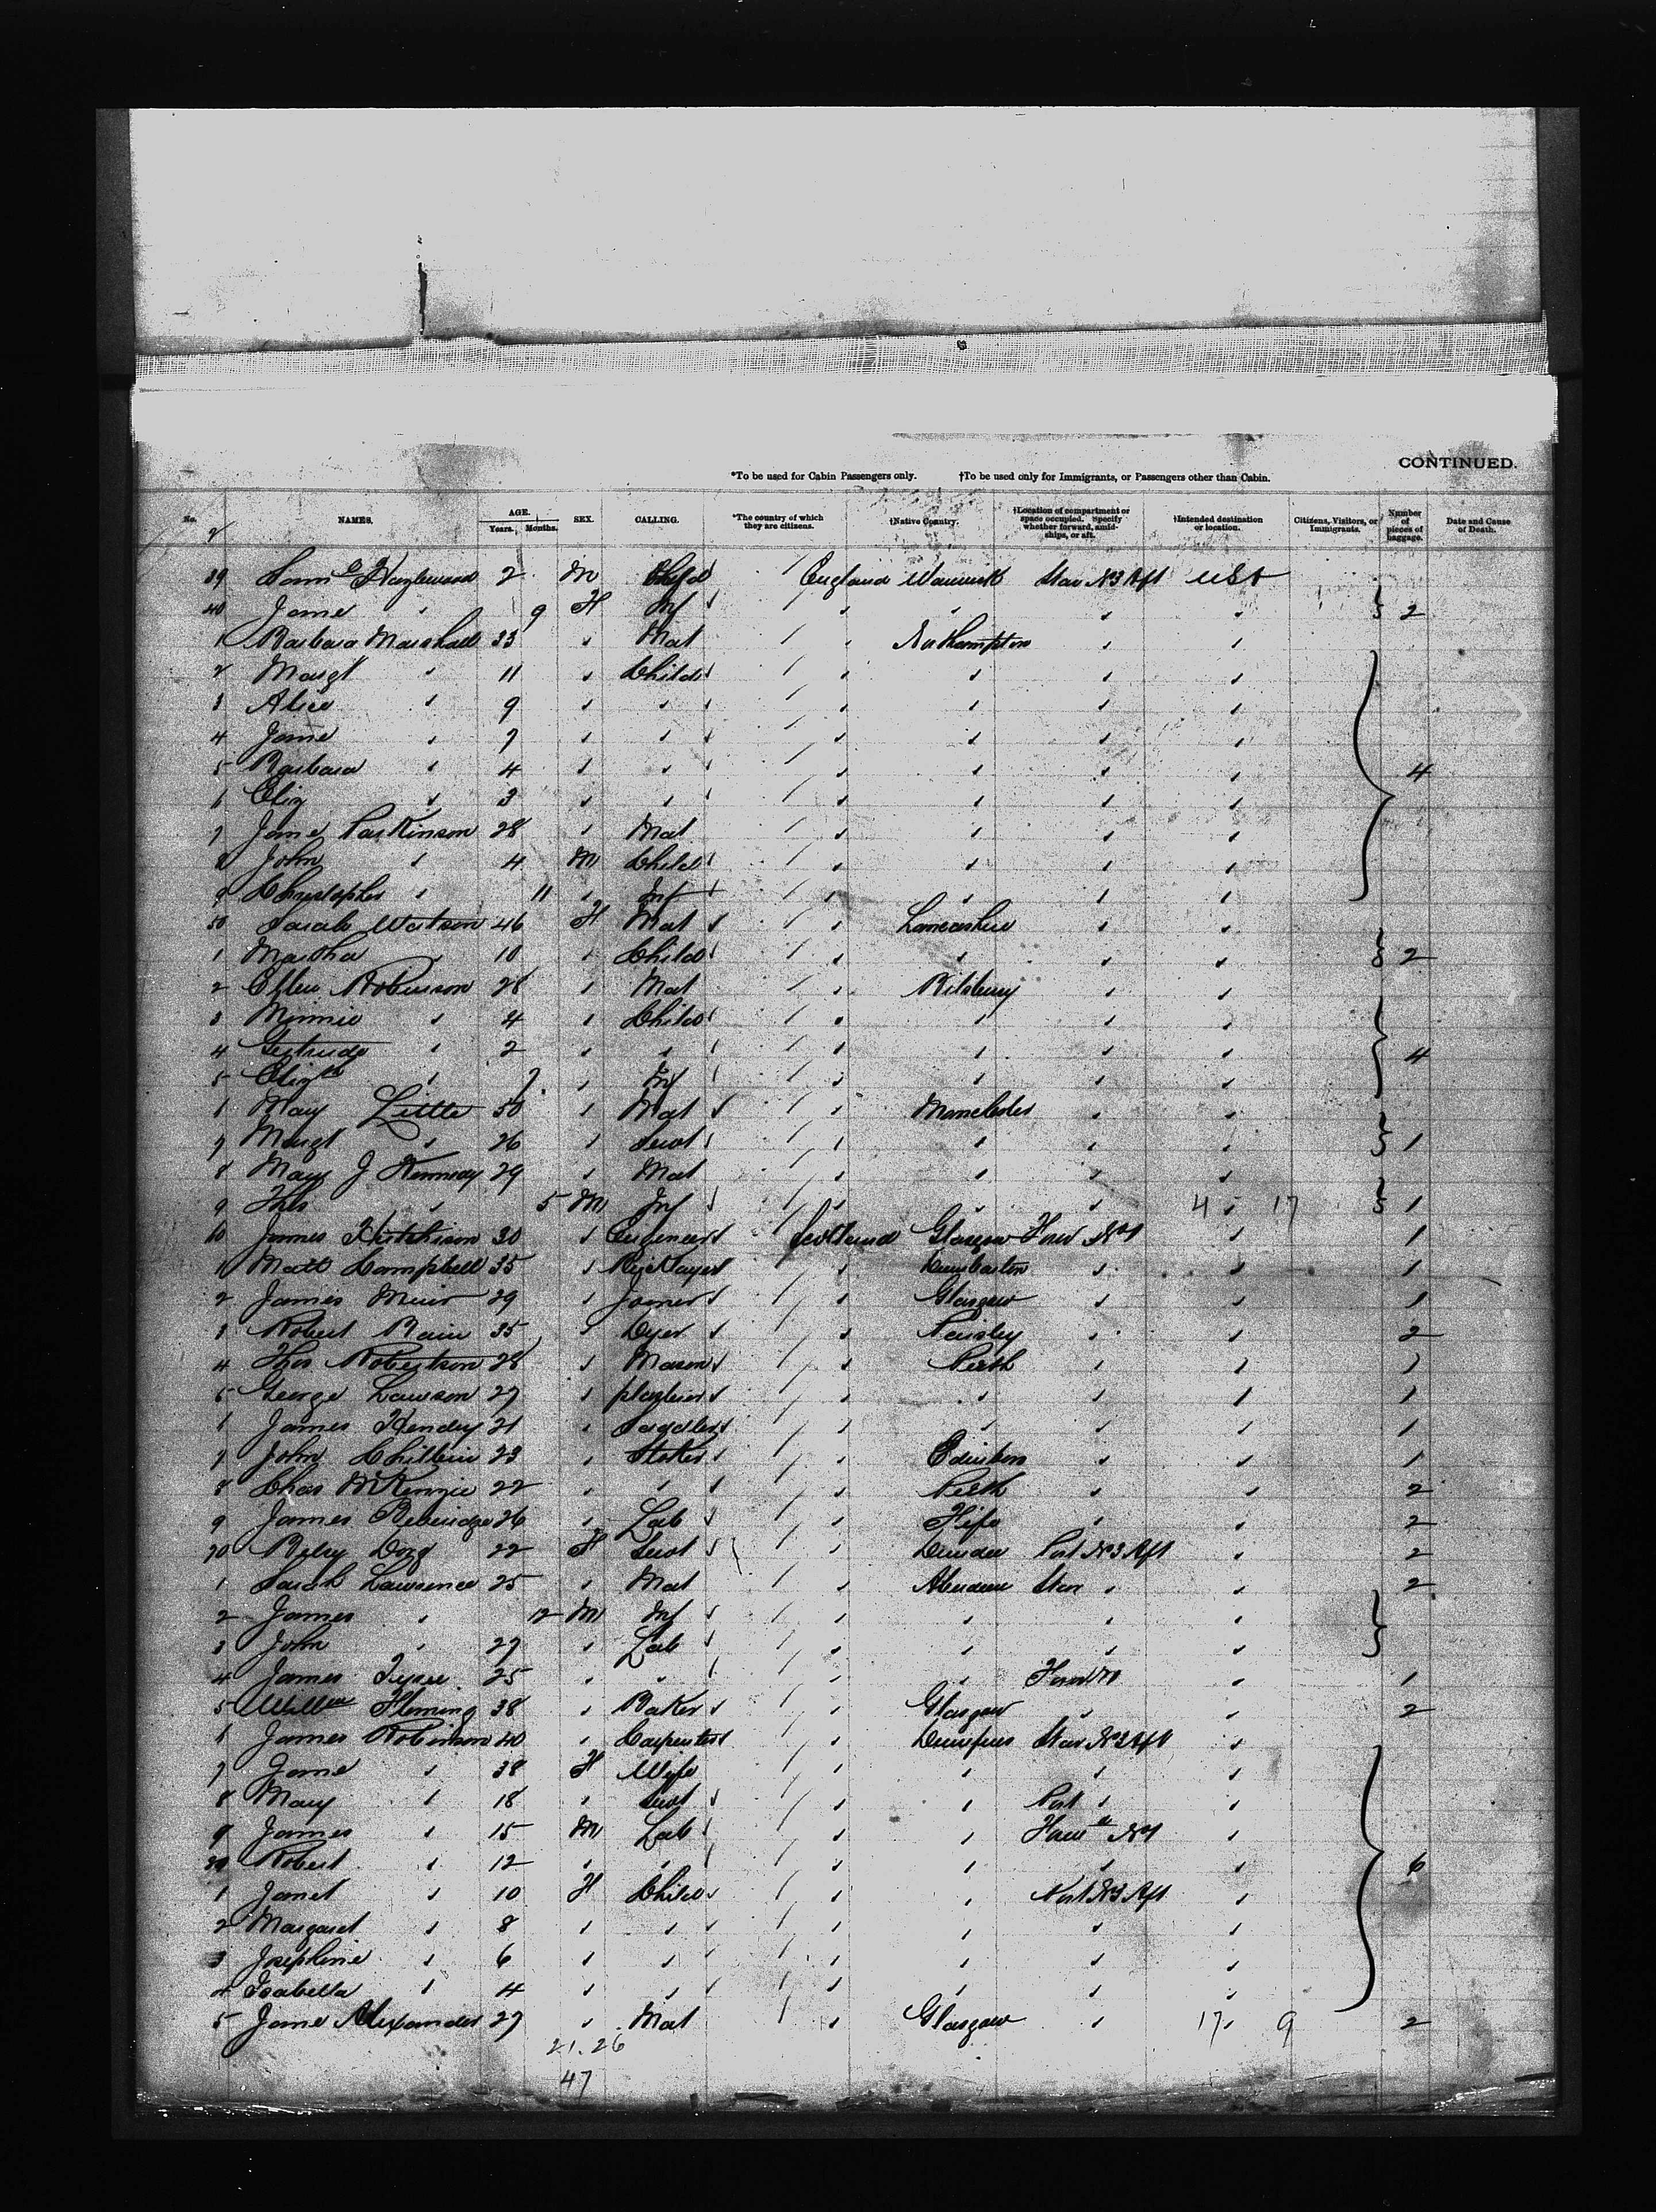 CONTINUED.
*To be used for Cabin Passengers only. †To be used only for Immigrants, or Passengers other than Cabin.
No. NAMES. AGE. Years. Months. SEX. CALLING. *The country of which they are citizens. †Native Country. †Location of compartment or space occupied. Specify whether forward, amidships, or aft. †Intended destination or location. Citizens, Visitors, or Immigrants. Number of pieces of baggage. Date and Cause of Death.
39 Saml Hazlewood 2 M Child England Warwick Star No3 Aft USA
40 Jane " 9 F Inf " " " " 2
1 Barbara Marshall 33 " Mat " Northampton " "
2 Margt " 11 " Child " " " "
3 Alice " 9 " " " " " "
4 Jane " 7 " " " " " "
5 Barbara " 4 " " " " " " 4
6 Eliz " 3 " " " " " "
7 Jane Parkinson 28 " Mat " " " "
8 John " 4 M Child " " " "
9 Christopher " 11 " Inf " " " "
50 Sarah Watson 46 F Mat " Lancashire " "
1 Martha " 10 " Child " " " " 2
2 Ellen Robinson 28 " Mat " Kilsbury " "
3 Minnie " 4 " Child " " " "
4 Gertrude " 2 " " " " " " 4
5 Elizth " 7 " Inf " " " "
6 Mary Little 50 " Mat " Manchester " "
7 Margt " 26 " Servt " " " " 1
8 Mary J Kennedy 29 " Mat " " " "
9 Thos " 5 M Inf " " " 4 " 17 1
60 James Hutchison 30 " Engineer Scotland Glasgow Forwd No1 " 1
1 Matt Campbell 35 " " Dumbarton " " 1
2 James Muir 29 " Joiner " Glasgow " " 1
3 Robert Bain 35 " Dyer " Paisley " " 2
4 Thos Robertson 28 " Mason " Perth " " 1
5 George Lawson 27 " plasterer " " " " 1
6 James Hendry 21 " Saddler " " " " 1
7 John 23 " Stoker " Edinburg " " 1
8 Chas McKenzie 22 " " " Perth " " 2
9 James Beveridge 26 " Lab " Fife " " 2
70 Betsy Doig 22 F Servt " Dundee Port No3 Aft " 2
1 Sarah Lawrence 25 " Mat " Aberdeen Star " " 2
2 James " 12 M Inf " " " "
3 John " 27 " Lab " " " "
4 James 25 " " " " Forwd No1 " 1
5 William Fleming 38 " Baker " Glasgow " " 2
6 James Robinson 40 " Carpenter " Dumfries Star No3 Aft "
7 Jane " 38 F Wife " " " "
8 Mary " 18 " Servt " " Port " "
9 James " 15 M Lab " " Forwd No1 "
80 Robert " 12 " " " " " " 6
1 Janet " 10 F Child " " Port No3 Aft "
2 Margaret " 8 " " " " " "
3 Josephine " 6 " " " " " "
4 Isabella " 4 " " " " " "
5 Jane Alexander 27 " Mat " Glasgow " 17 " 9 2
21.26
47